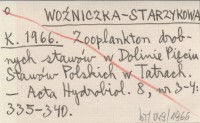 WOŹNICZKA-STARZYKOWA
K. 1966. Zooplankton drob-
nych stawów w Dolinie Pięciu
Stawów Polskich w Tatrach.
— Acta Hydrobiol. 8, nr 3-4:
335-340.